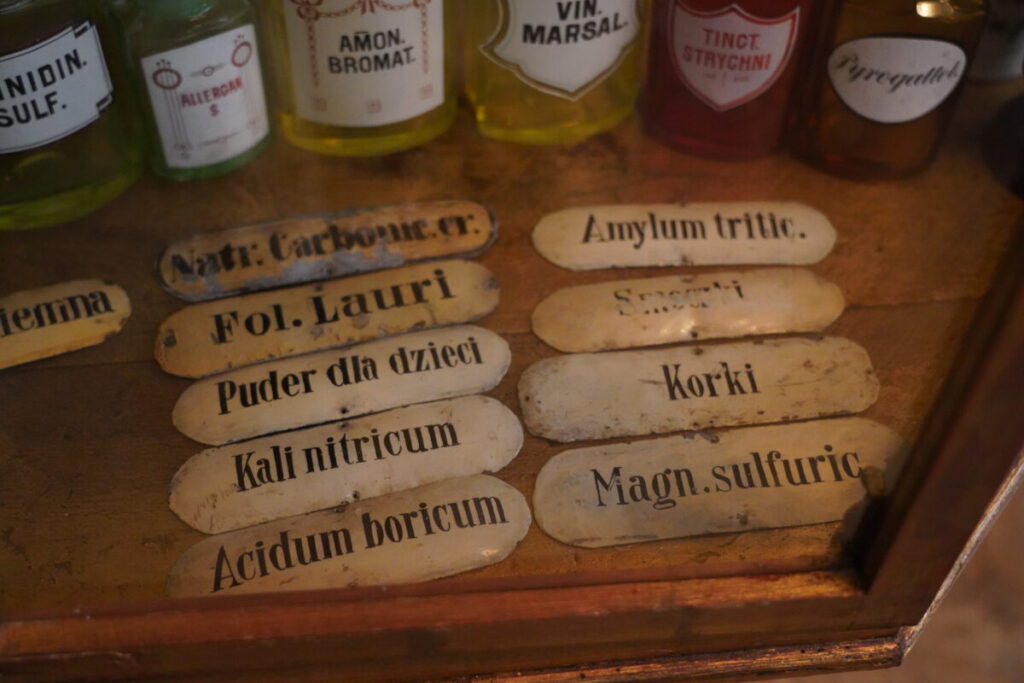 NIDIN.
SULF.
ALLERGAN
S.
AMON.
BROMAT.
VIN.
MARSAL.
TINCT.
STRYCHNI
Pyrogallol.
Natr. Carbonic. cr.
Amylum tritic.
iemna
Fol. Lauri
Puder dla dzieci
Korki
Kali nitricum
Magn. sulfuric
Acidum boricum